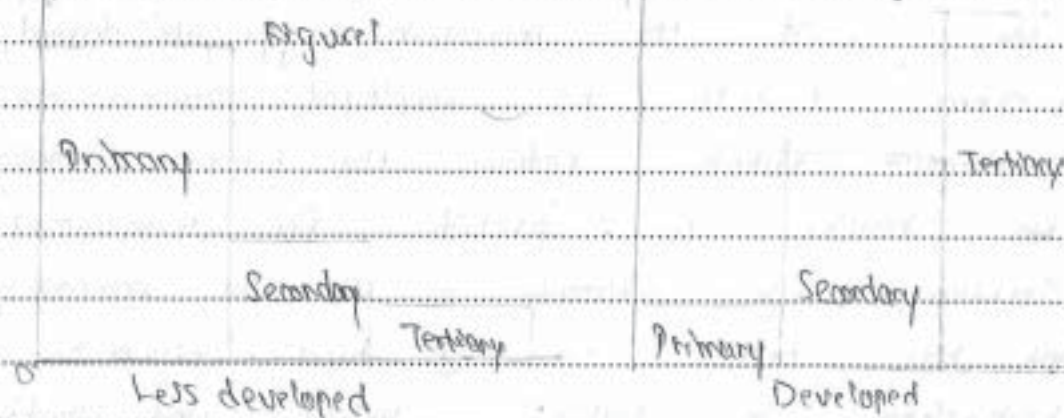 Figure 1
Primary Tertiary
Secondary Secondary
Tertiary Primary
0
Less developed Developed